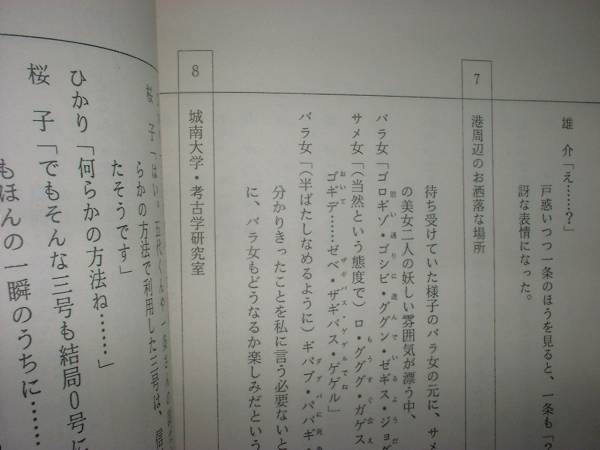 雄 介「え……?」
戸惑いつつ一条のほうを見ると、一条も「?
訝な表情になった。
7 港周辺のお洒落な場所
待ち受けていた様子のバラ女の元に、サメ
の美女二人の妖しい雰囲気が漂う中、
バラ女「ゴロギゾ・ゴシビ・ググン・ゼギス・ジョグ
サメ女「(当然という態度で)ロ・グググ・ガゲス
ゴギデ……ゼベ・ザギバス・ゲゲル」
バラ女「(半ばたしなめるように)ギバブ・
分かりきったことを私に言う必要ないと
に、バラ女もどうなるか楽しみだという
8 城南大学・考古学研究室
桜 子「はい。五代くんや一条さんの
らかの方法で利用した三号は、
たそうです」
ひかり「何らかの方法ね……」
桜 子「でもそんな三号も結局0号に
もほんの一瞬のうちに……